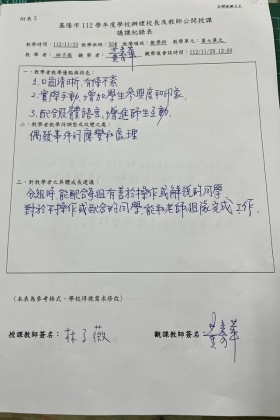 附表5
基隆市 112 學年度學校辦理校長及教師公開授課
議課紀錄表
教學時間：112/11/29 教學班級：308 教學領域：數學科 教學單元：第七單元
教學者：林子薇 觀課者：黃素華 觀課後會談時間：112/11/29 13:00
一、教學者教學優點與特色：
1.口齒清晰，有條不紊
2.實際手動，增加學生參與度和印象
3.配合肢體語言，增進師生互動
二、教學者教學待調整或改變之處：
偶發事件的應變和處理
三、對教學者之具體成長建議：
分組時，能配合每組有善於操作或解說的同學，
對於不操作或配合的同學，能和老師組隊完成工作。
(本表為參考格式，學校得視需求修改)
授課教師簽名：林子薇
觀課教師簽名：黃素華